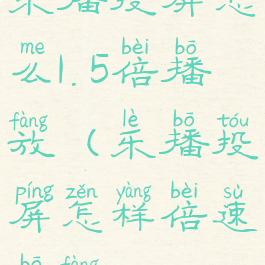 乐播投屏怎
me bèi bō
么1.5倍播
fàng lè bō tóu
放（乐播投
píng zěn yàng bèi sù
屏怎样倍速
bō fàng